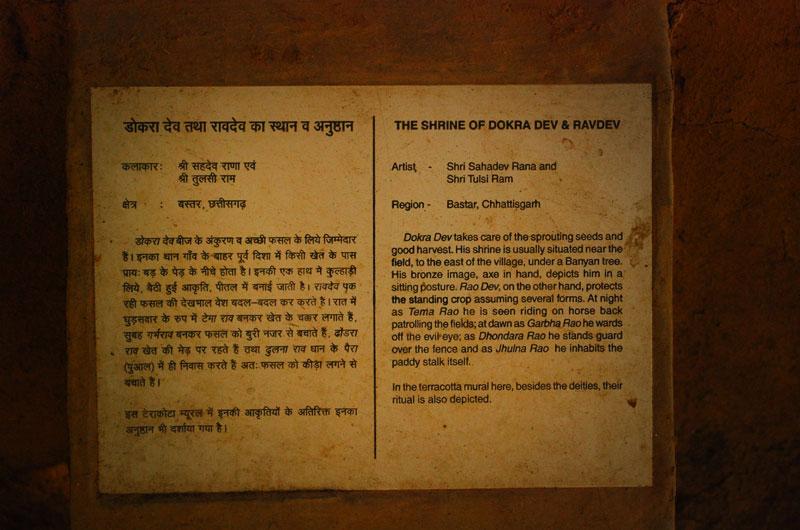 डोकरा देव तथा रावदेव का स्थान व अनुष्ठान
कलाकार: श्री सहदेव राणा एवं
श्री तुलसी राम
क्षेत्र : बस्तर, छत्तीसगढ़
डोकरा देव बीज के अंकुरण व अच्छी फसल के लिये जिम्मेदार
हैं। इनका थान गाँव के बाहर पूर्व दिशा में किसी खेत के पास
प्रायः बड़ के पेड़ के नीचे होता है। इनकी एक हाथ में कुल्हाड़ी
लिये, बैठी हुई आकृति, पीतल में बनाई जाती है। रावदेव पक
रही फसल की देखभाल वेश बदल–बदल कर करते है। रात में
घुड़सवार के रुप में टेमा राव बनकर खेत के चक्कर लगाते हैं,
सुबह गर्भराव बनकर फसल को बुरी नजर से बचाते हैं, ढोंडरा
राव खेत की मेड़ पर रहते हैं तथा झुलना राव धान के पैरा
(पुआल) में ही निवास करते हैं अतः फसल को कीड़ा लगने से
बचाते हैं।
इस टेराकोटा म्यूरल में इनकी आकृतियों के अतिरिक्त इनका
अनुष्ठान भी दर्शाया गया है।
THE SHRINE OF DOKRA DEV & RAVDEV
Artist - Shri Sahadev Rana and
Shri Tulsi Ram
Region - Bastar, Chhattisgarh
Dokra Dev takes care of the sprouting seeds and
good harvest. His shrine is usually situated near the
field, to the east of the village, under a Banyan tree.
His bronze image, axe in hand, depicts him in a
sitting posture. Rao Dev, on the other hand, protects
the standing crop assuming several forms. At night
as Tema Rao he is seen riding on horse back
patrolling the fields; at dawn as Garbha Rao he wards
off the evil eye; as Dhondara Rao he stands guard
over the fence and as Jhulna Rao he inhabits the
paddy stalk itself.
In the terracotta mural here, besides the deities, their
ritual is also depicted.